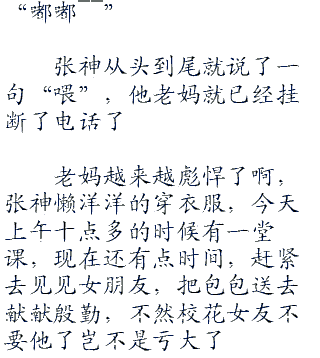 “嘟嘟——”
张神从头到尾就说了一
句“喂”，他老妈就已经挂
断了电话了
老妈越来越彪悍了啊，
张神懒洋洋的穿衣服，今天
上午十点多的时候有一堂
课，现在还有点时间，赶紧
去见见女朋友，把包包送去
献献殷勤，不然校花女友不
要他了岂不是亏大了